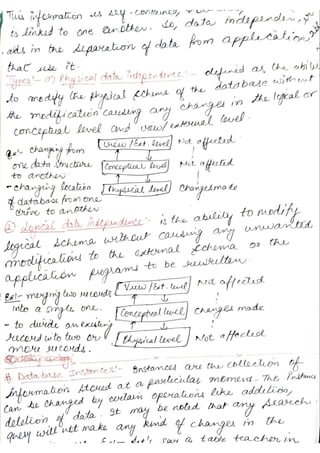 This information is self-contained,
is linked to one another. So, data independence
aids in the separation of data from application
that use it.
Types:- (1) Physical data independence:- defined as the ability
to modify the physical scheme of the database without
the modification causing any changes in the logical or
conceptual level and view/external level.
Ex:- changing from View/Ext. level Not affected
one data structure
to another Conceptual level Not affected
- changing location
of database from one Physical level Changes made
drive to another
(2) Logical data independence:- is the ability to modify
logical schema without causing any unwanted
modifications to the external schema or the
application programs to be rewritten.
Ex:- merging two records View/Ext. level Not affected
into a single one.
- to divide an existing Conceptual level changes made
record into two or
more records. Physical level Not affected
# Database Instances:- Instances are the collection of
information stored at a particular moment. The instance
can be changed by certain operations like addition,
deletion of data. It may be noted that any search
query will not make any kind of changes in the
let's say a table teacher in